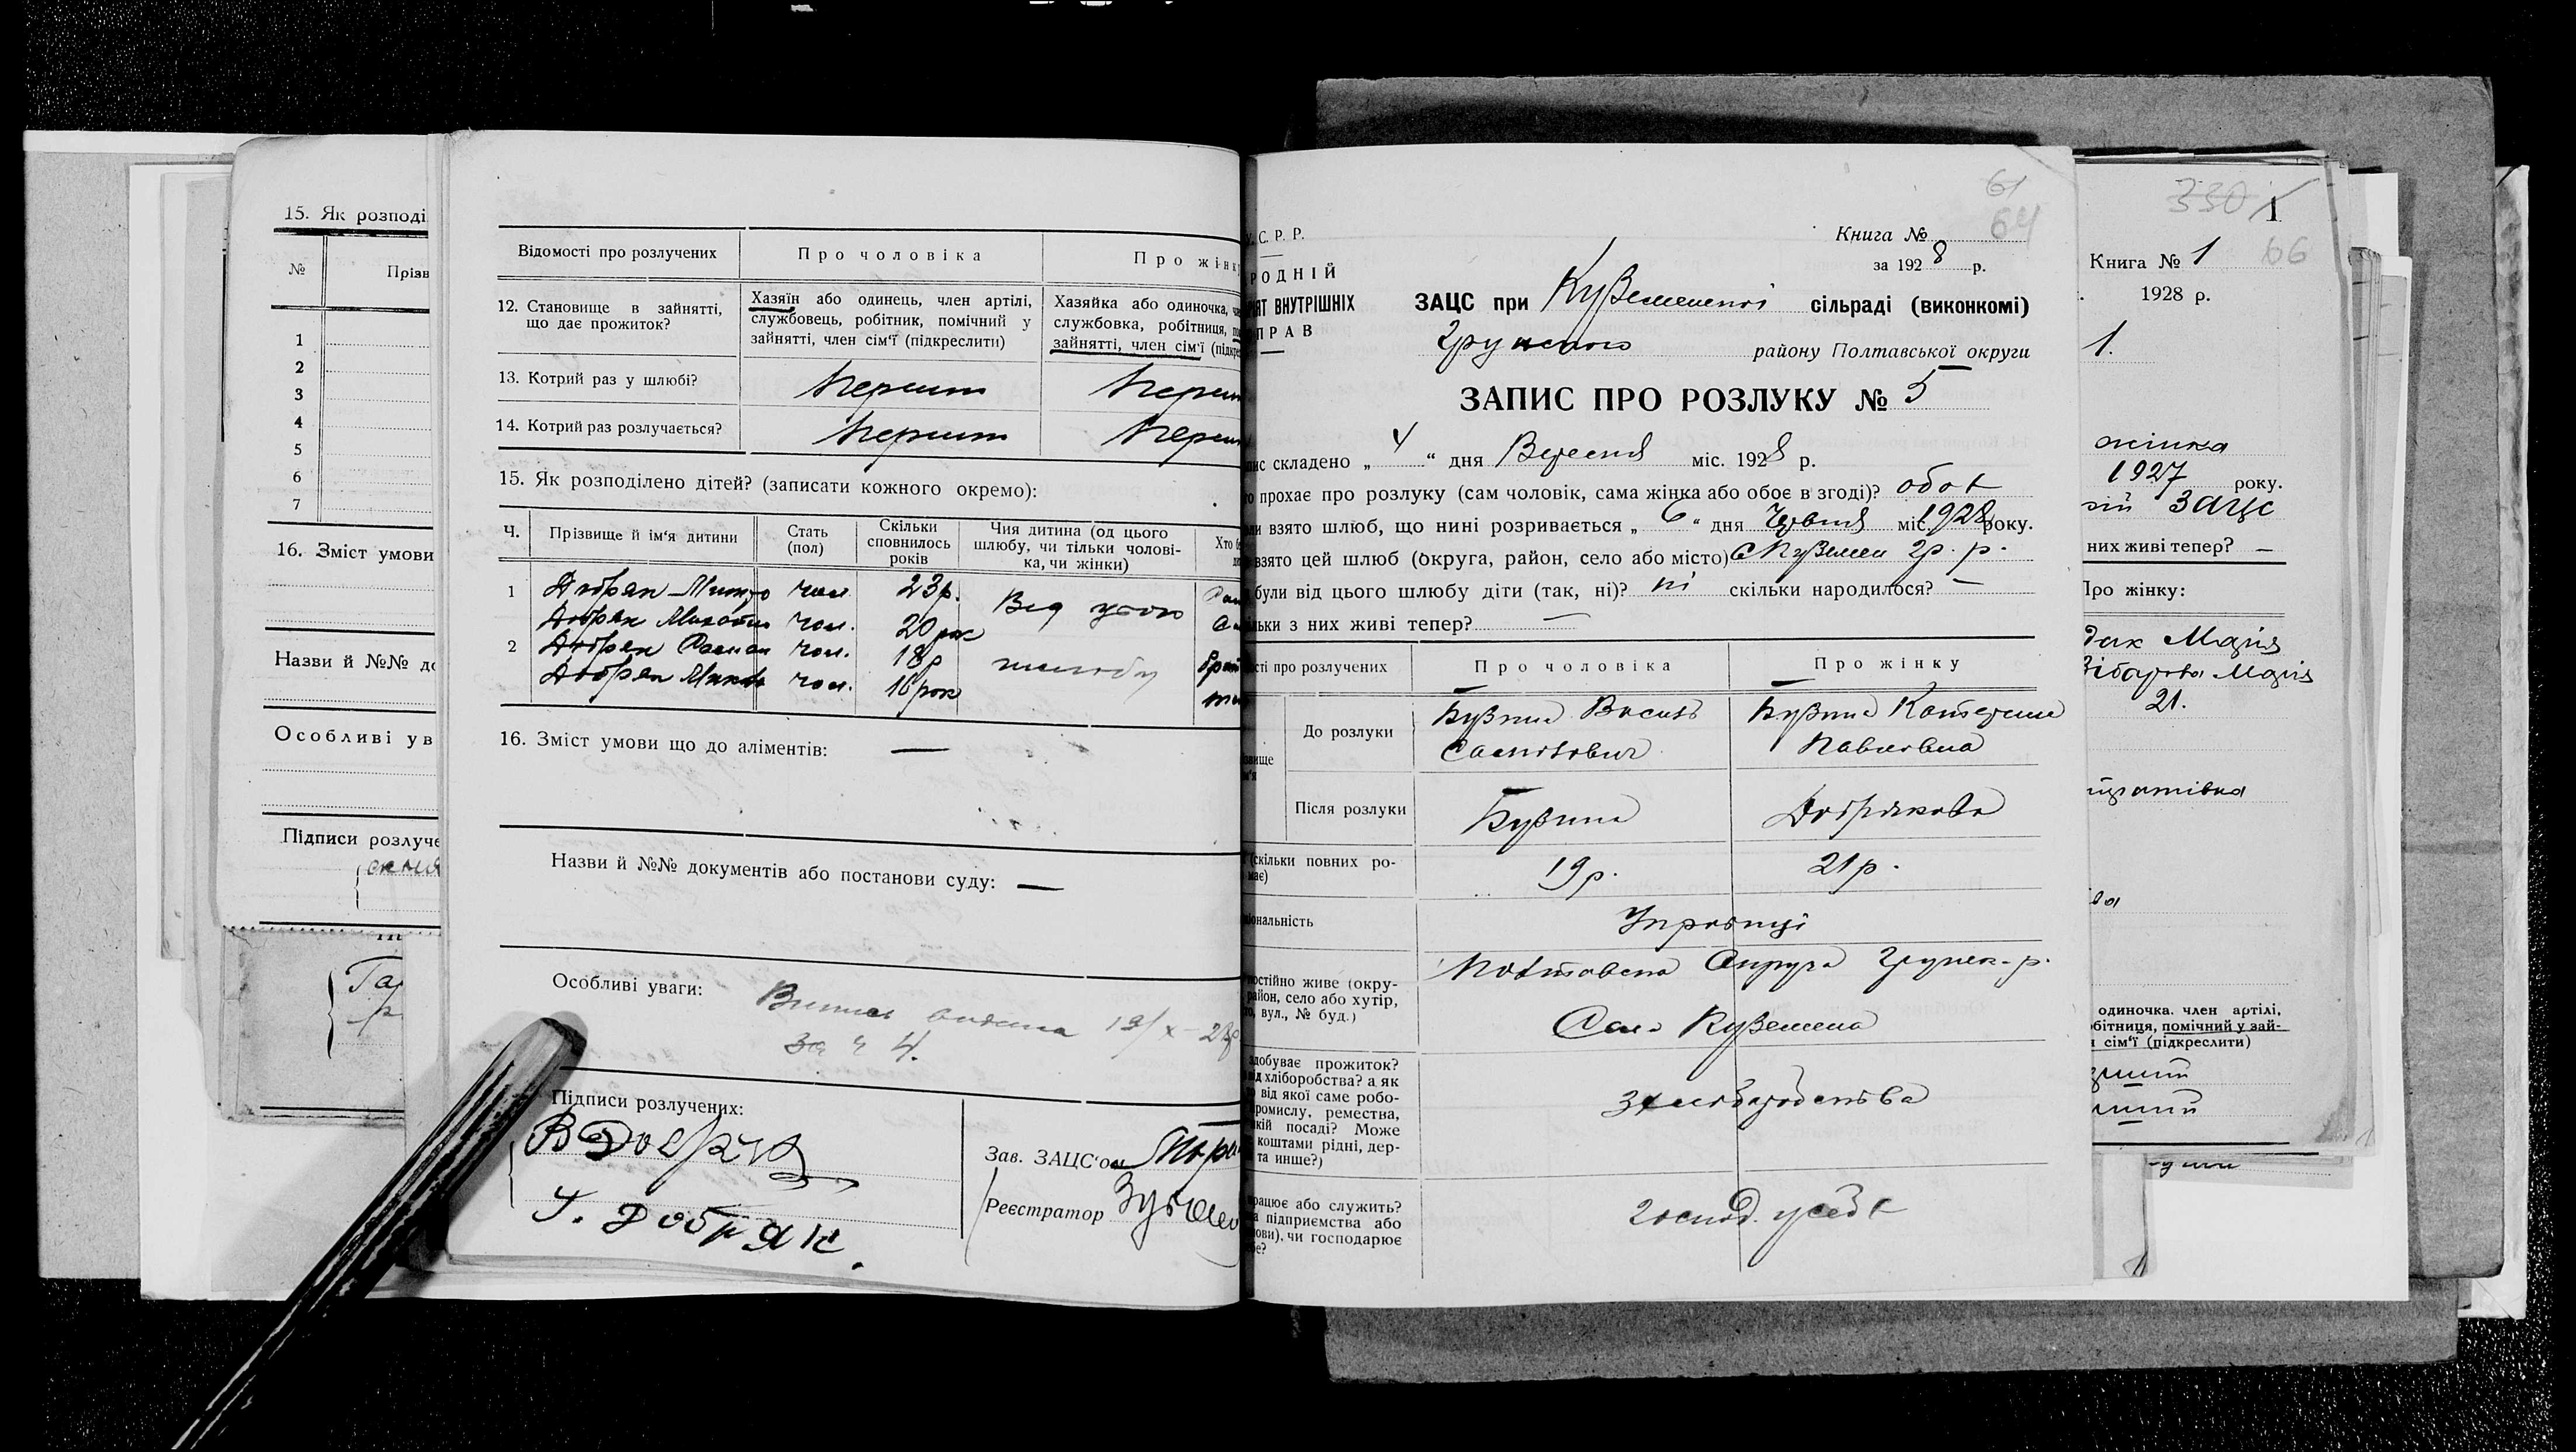 15. Як розподі
№ Прізв
1
2
3
4
5
6
7
16. Зміст умови
Назви й №№ до
Особливі ув
Підписи розлуче
Відомості про розлучених Про чоловіка Про жінк
12. Становище в зайнятті, що дає прожиток?
Хазяїн або одинець, член артілі,
службовець, робітник, помічний у
зайнятті, член сім'ї (підкреслити)
Хазяйка або одиночка,
службовка, робітниця,
зайнятті, член сім'ї (підкре
13. Котрий раз у шлюбі? перший перши
14. Котрий раз розлучається? перший перши
15. Як розподілено дітей? (записати кожного окремо):
Ч. Прізвище й ім'я дитини Стать (пол) Скільки сповнилось років Чия дитина (од цього шлюбу, чи тільки чоловіка, чи жінки) Хто
1 Добряк чол. 23р. Від цього
Добряк чол. 20 рок
2 Добряк Роман чол. 18р шлюбу
Добряк чол. 16 рок
16. Зміст умови що до аліментів: —
Назви й №№ документів або постанови суду: —
Особливі уваги: видана 19/X-28р
за ч 4.
Підписи розлучених:
В Добряк
У. Добряк.
Зав. ЗАЦС'ом
Реєстратор
У.С.Р.Р.
РОДНІЙ
РІЯТ ВНУТРІШНІХ
ПРАВ
61
64
Книга №
за 1928 р.
ЗАЦС при Куземенській сільраді (виконкомі)
Грунського району Полтавської округи
ЗАПИС ПРО РОЗЛУКУ № 5
пис складено „4“ дня Вересня міс. 1928 р.
о прохає про розлуку (сам чоловік, сама жінка або обоє в згоді)? обоє
ли взято шлюб, що нині розривається „6“ дня Червня міс. 1928 року.
взято цей шлюб (округа, район, село або місто) с Куземен гр. р.
були від цього шлюбу діти (так, ні)? ні скільки народилося? —
льки з них живі тепер? —
сті про розлучених Про чоловіка Про жінку
звище
м'я
До розлуки Бузина Василь Бузина Катерина
Павловна
Після розлуки Бузина Добрякова
(скільки повних ро-
має) 19р. 21р.
ціональність Українці
постійно живе (окру-
район, село або хутір,
то, вул., № буд.)
Полтавська Округа Грунськ. р.
Село Куземена
здобуває прожиток?
від хліборобства? а як
о від якої саме робо-
промислу, ремества,
якій посаді? Може
коштами рідні, дер-
та инше?)
хліборобства
працює або служить?
а підприємства або
ови), чи господарює
бе?
господ. у себе
330 1
Книга № 1 66
1928 р.
1.
жінка
1927 року.
ЗАЦС
них живі тепер? —
Про жінку:
дак Марія
Марія
21.
одиночка, член артілі,
бітниця, помічний у зай-
сім'ї (підкреслити)